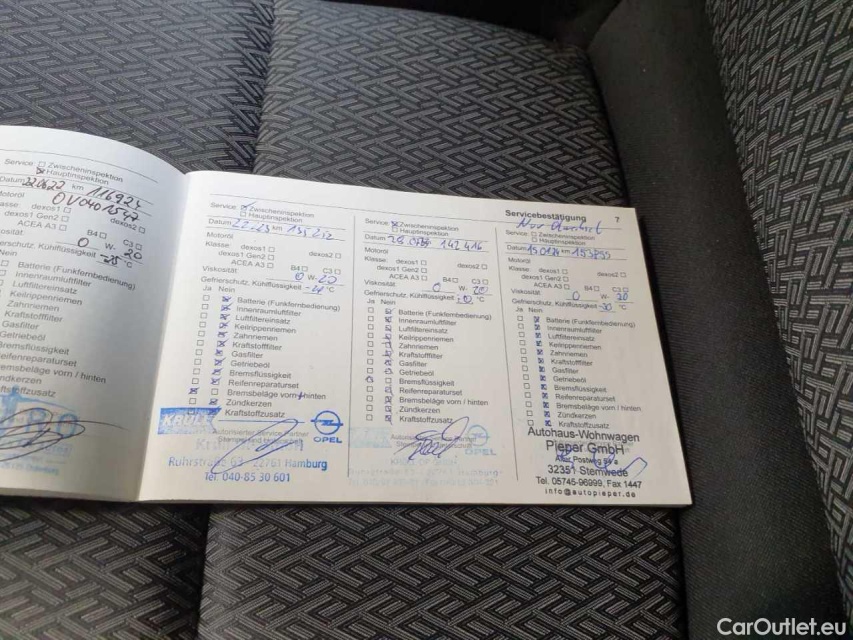 Service: Zwischeninspektion
Hauptinspektion
Datum 22.06.22 km 116924
Motoröl OV0401547
dexos1
dexos2
dexos1 Gen2
ACEA A3 B4 C3
0 W- 20
Kühlflüssigkeit -25 °C
Batterie (Funkfernbedienung)
Innenraumluftfilter
Luftfiltereinsatz
Keilrippenriemen
Zahnriemen
Kraftstofffilter
Gasfilter
Getriebeöl
Bremsflüssigkeit
Reifenreparaturset
Bremsbeläge vorn / hinten
Zündkerzen
Kraftstoffzusatz
Service: Zwischeninspektion
Hauptinspektion
Datum km
Motoröl
Klasse: dexos1 dexos2
dexos1 Gen2
ACEA A3 B4 C3
Viskosität 0 W- 20
Gefrierschutz, Kühlflüssigkeit °C
Ja Nein
Batterie (Funkfernbedienung)
Innenraumluftfilter
Luftfiltereinsatz
Keilrippenriemen
Zahnriemen
Kraftstofffilter
Gasfilter
Getriebeöl
Bremsflüssigkeit
Reifenreparaturset
Bremsbeläge vorn / hinten
Zündkerzen
Kraftstoffzusatz
KRÜLL
OPEL
Autorisierter Service Partner
Ruhrstraße 63 - 22761 Hamburg
Tel. 040-85 30 601
Service: Zwischeninspektion
Hauptinspektion
Datum km 142 416
Motoröl
Klasse: dexos1 dexos2
dexos1 Gen2
ACEA A3 B4 C3
Viskosität 0 W- 20
Gefrierschutz, Kühlflüssigkeit °C
Ja Nein
Batterie (Funkfernbedienung)
Innenraumluftfilter
Luftfiltereinsatz
Keilrippenriemen
Zahnriemen
Kraftstofffilter
Gasfilter
Getriebeöl
Bremsflüssigkeit
Reifenreparaturset
Bremsbeläge vorn / hinten
Zündkerzen
Kraftstoffzusatz
Servicebestätigung 7
Service: Zwischeninspektion
Hauptinspektion
Datum km
Motoröl
Klasse: dexos1 dexos2
dexos1 Gen2
ACEA A3 B4 C3
Viskosität 0 W-
Gefrierschutz, Kühlflüssigkeit °C
Ja Nein
Batterie (Funkfernbedienung)
Innenraumluftfilter
Luftfiltereinsatz
Keilrippenriemen
Zahnriemen
Kraftstofffilter
Gasfilter
Getriebeöl
Bremsflüssigkeit
Reifenreparaturset
Bremsbeläge vorn / hinten
Zündkerzen
Kraftstoffzusatz
Autohaus-Wohnwagen
Pieper GmbH
32351 Stemwede
Tel. 05745-96999, Fax 1447
info@autopieper.de
CarOutlet.eu